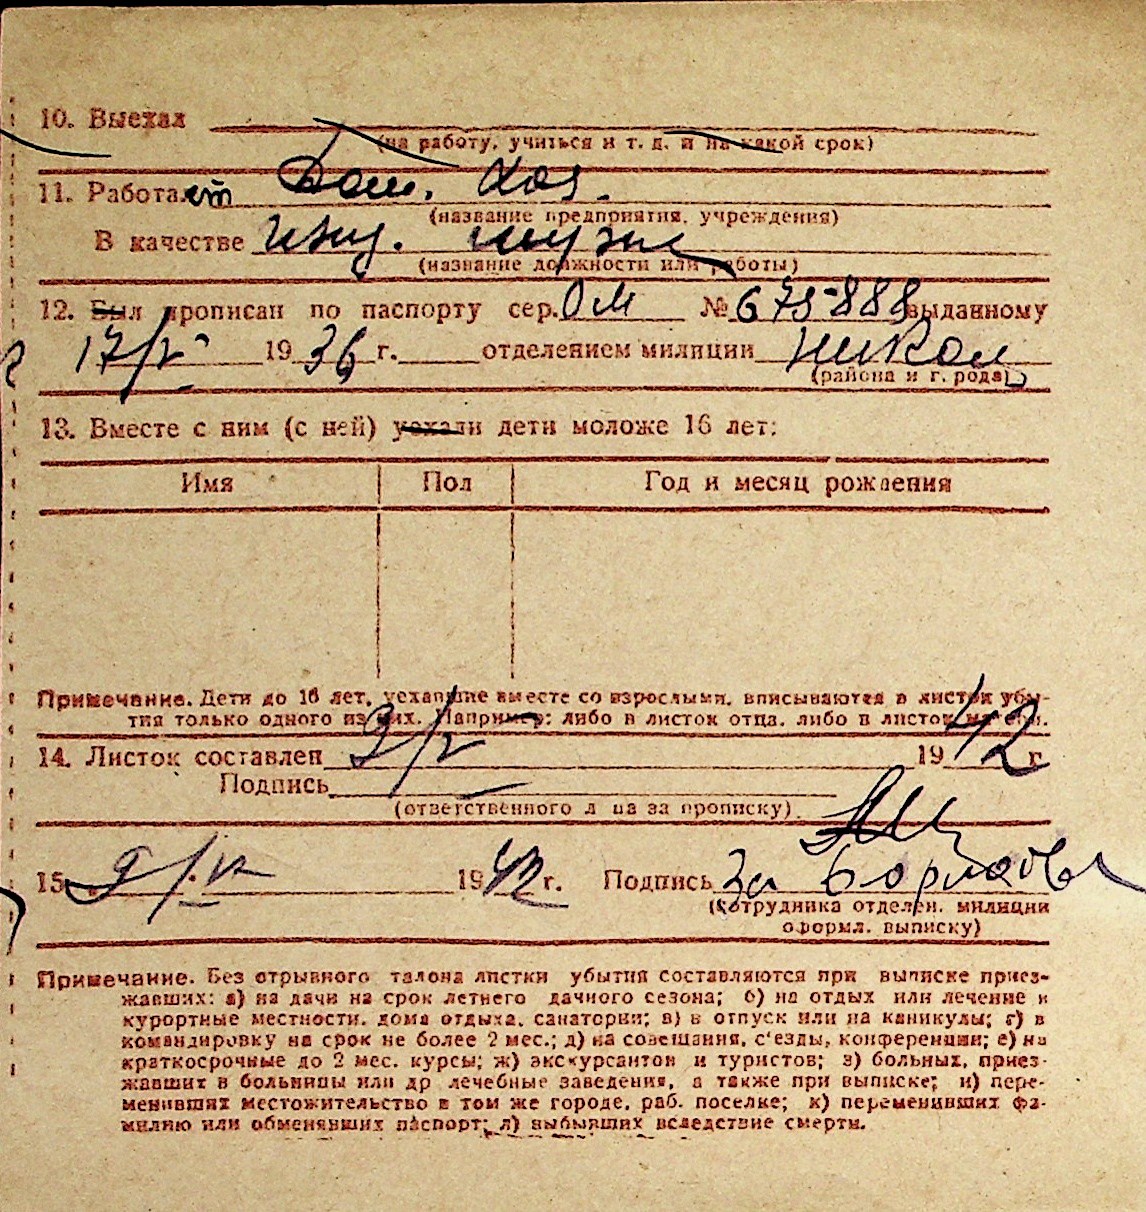 10. Выехал
(на работу, учиться и т. д. и на какой срок)
11. Работает Дом. Хоз.
(название предприятия, учреждения)
В качестве ижд. мужа
(название должности или работы)
12. Был прописан по паспорту сер. ОМ № 675-888 выданному
17/V 1936 г. отделением милиции Никол
(района и г. рода)
13. Вместе с ним (с ней) уехали дети моложе 16 лет:
Имя Пол Год и месяц рождения
Примечание. Дети до 16 лет, уехавшие вместе со взрослыми, вписываются в листок убы-
тия только одного из них. Например: либо в листок отца, либо в листок матери.
14. Листок составлен 1942 г.
Подпись
(ответственного лица за прописку)
15. 1942 г. Подпись За
(сотрудника отделен. милиции
оформл. выписку)
Примечание. Без отрывного талона листки убытия составляются при выписке приез-
жавших: а) на дачи на срок летнего дачного сезона; б) на отдых или лечение в
курортные местности, дома отдыха, санатории; в) в отпуск или на каникулы; г) в
командировку на срок не более 2 мес.; д) на совещания, с'езды, конференции; е) на
краткосрочные до 2 мес. курсы; ж) экскурсантов и туристов; з) больных, приез-
жавших в больницы или др лечебные заведения, а также при выписке; и) пере-
менивших местожительство в том же городе, раб. поселке; к) переменивших фа-
милию или обменявших паспорт; л) выбывших вследствие смерти.